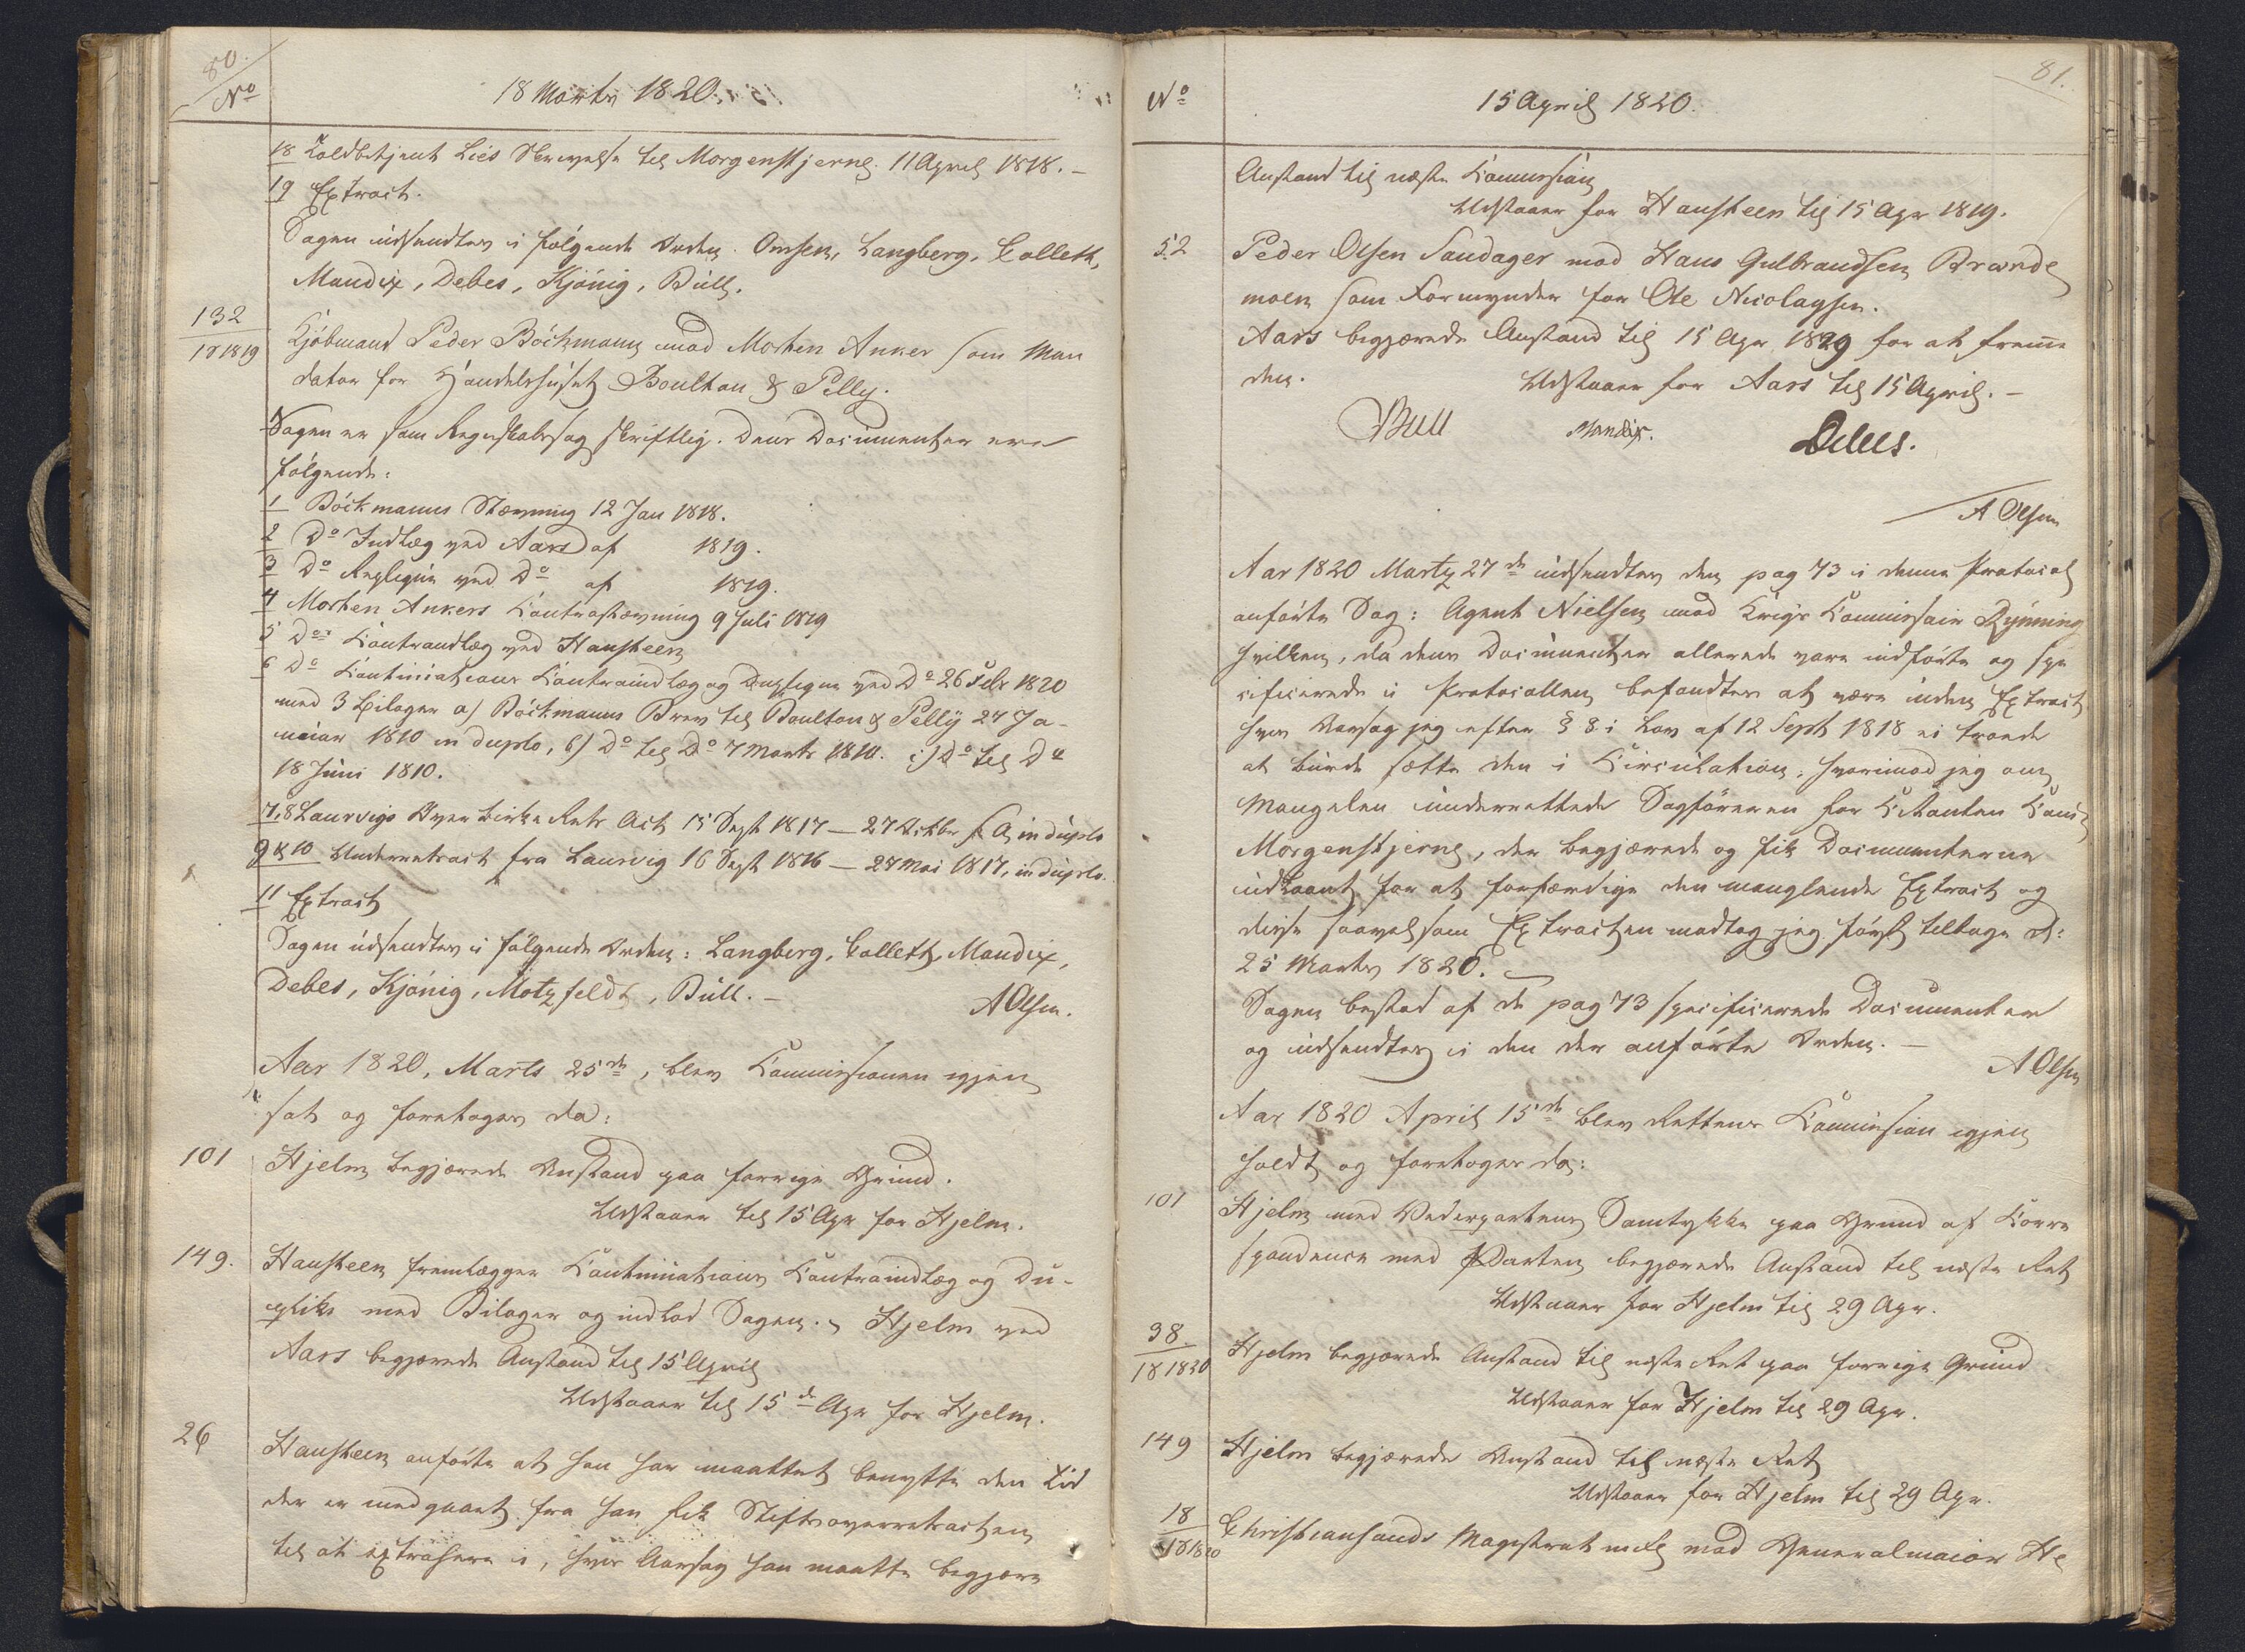 80.
No
18 Marts 1820.
18 Toldbetjent Lies Skrivelse til Morgenstjerne 11 April 1818. –
19 Extract.
Sagen udsendtes i følgende Orden. Omsen, Langberg, Collett,
Mandix, Debes, Kjönig, Bull.
132
18 1819
Kjøbmand Peder Böckmann mod Morten Anker som Man
datar for Handelshuset Boulton & Pelly.
Sagen er som Regnskabssag skriftlig. Dens Documenter ere
følgende:
1 Böckmanns Stævning 12 Jan 1818.
2 Do Indlæg ved Aars af 1819.
3 Do Repliqve ved Do af 1819.
4 Morten Ankers Contrastævning 9 Juli 1819
5 Dos Contraindlæg ved Hansteen
6 Do Continuations Contraindlæg og Dupliqve ved Do 26 Febr 1820
med 3 Bilager a) Böckmanns Brev til Boulton & Pelly 24 Ja-
nuar 1810 in duplo, b) Do til Do 7 Marts 1810. c) Do til Do
18 Juni 1810.
7, 8 Laurvigs Overbirke Rets Act 15 Sept 1817 – 27 Octbr s A, in duplo
9 & 10 Underretsact fra Laurvig 16 Sept 1816 – 24 Mai 1817, in duplo.
11 Extract
Sagen udsendtes i følgende Orden: Langberg, Collett, Mandix,
Debes, Kjönig, Motzfeldt, Bull. –
A Olsen.
Aar 1820, Marts 25de, blev Commissionen igjen
sat og foretoges da:
101
Hjelm begjærede Anstand paa forrige Grund.
Udstaaer til 15 Apr for Hjelm.
149.
Hansteen fremlægger Continuations Contraindlæg og Du-
plik med Bilager og indlod Sagen. Hjelm ved
Aars begjærede Anstand til 15 April
Udstaaer til 15de Apr for Hjelm.
26
Hansteen anførte at han har maattet benytte den Tid
der er medgaaet fra han fik Stiftsoverretsacten
til at extrahere i, hvis Aarsag han maatte begjære
81.
No
15 April 1820.
Anstand til næste Commission
Udstaaer for Hansteen til 15 Apr 1819.
52
Peder Olsen Sandager mod Hans Gulbrandsen Brænde
moen som Formynder for Ole Nicolaysen.
Aars begjærede Anstand til 15 Apr 1829 for at fremme
den.
Udstaaer for Aars til 15 April. –
Bull Mandix. Debes.
A Olsen
Aar 1820 Marty 27de udsendtes den pag 73 i denne Protocol
anførte Sag: Agent Nielsen mod Krigs Commissair Rynning
hvilken, da dens Documenter allerede vare indførte og spe
cificerede i Protocollen befandtes at være uden Extract
hvis Aarsag jeg efter § 8 i Lov af 12 Sept 1818 ei troede
at burde sætte den i Circulation, hvorimod jeg om
Mangelen underrettede Sagføreren for Citanten
Morgenstjerne, der begjærede og fik Documenterne
udlaant for at forfærdige den manglende Extract og
disse saavelsom Extracten modtog jeg først tilbage d:
25 Marts 1820.
Sagen bestod af de pag 73 specificerede Documenter
og udsendtes i den der anførte Orden. –
A Olsen
Aar 1820 April 15de blev Rettens Commission igjen
holdt og foretoges da:
101
Hjelm med Vederpartens Samtykke paa Grund af Corre
spondence med Parten begjærede Anstand til næste Ret
Udstaaer for Hjelm til 29 Apr.
38
18 1820
Hjelm begjærede Anstand til næste Ret paa forrige Grund
Udstaaer for Hjelm til 29 Apr.
149
Hjelm begjærede Anstand til næste Ret
Udstaaer for Hjelm til 29 Apr.
18
18 1820
Christiansands Magistrat mod Generalmaior